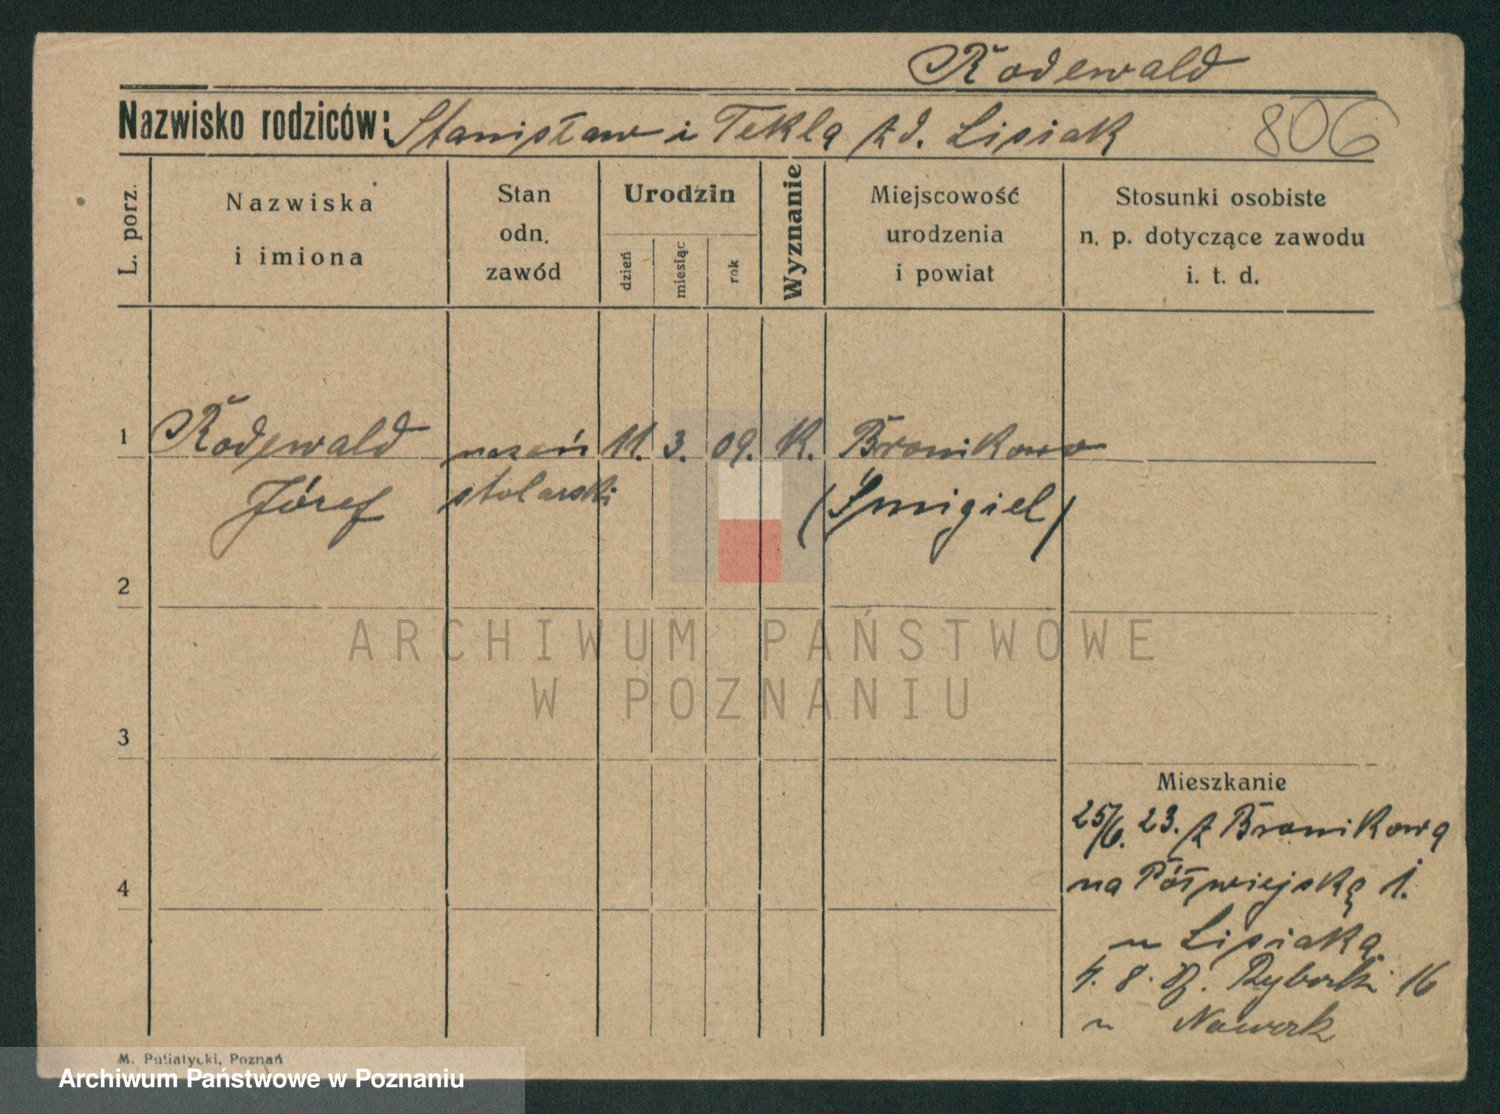 Rodewald
Nazwisko rodziców: Stanisław i Tekla z d. Lisiak
806
L. porz.
Nazwiska
i imiona
Stan
odn.
zawód
Urodzin
dzień
miesiąc
rok
Wyznanie
Miejscowość
urodzenia
i powiat
Stosunki osobiste
n. p. dotyczące zawodu
i. t. d.
1 Rodewald uczeń 11. 3. 09. K. Bronikowo
Józef stolarski (Śmigiel)
2
ARCHIWUM PAŃSTWOWE
W POZNANIU
3
Mieszkanie
25/6. 23. z Bronikowa
na Półwiejską 1.
4
u Lisiaka
8. Rybaki 16
u Nowak
M. Putiatycki, Poznań
Archiwum Państwowe w Poznaniu